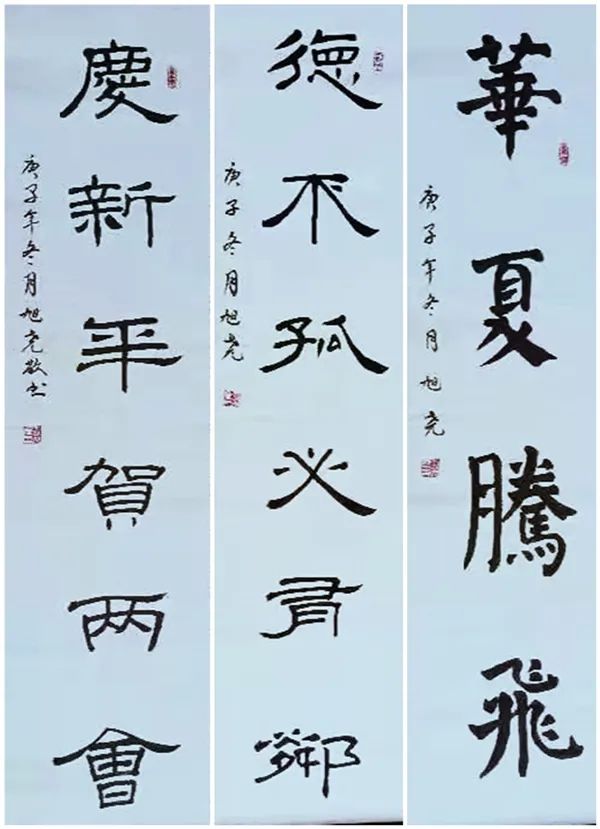 華夏騰飛
庚子年冬月旭尧
德不孤必有鄰
庚子冬月旭尧
慶新年賀两會
庚子年冬月旭尧敬书